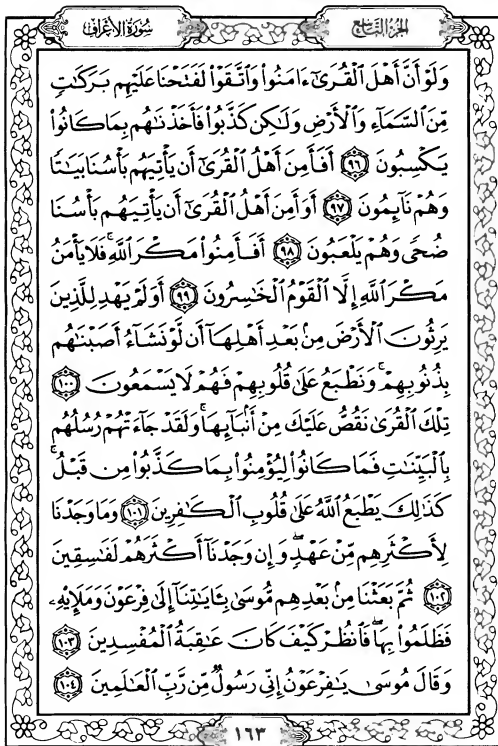 سُورَةُ الأَعْرَافِ
الجُزْءُ التَّاسِعُ
وَلَوْ أَنَّ أَهْلَ ٱلْقُرَىٰٓ ءَامَنُوا۟ وَٱتَّقَوْا۟ لَفَتَحْنَا عَلَيْهِم بَرَكَٰتٍ
مِّنَ ٱلسَّمَآءِ وَٱلْأَرْضِ وَلَٰكِن كَذَّبُوا۟ فَأَخَذْنَٰهُم بِمَا كَانُوا۟
يَكْسِبُونَ ٩٦ أَفَأَمِنَ أَهْلُ ٱلْقُرَىٰٓ أَن يَأْتِيَهُم بَأْسُنَا بَيَٰتًا
وَهُمْ نَآئِمُونَ ٩٧ أَوَأَمِنَ أَهْلُ ٱلْقُرَىٰٓ أَن يَأْتِيَهُم بَأْسُنَا
ضُحًى وَهُمْ يَلْعَبُونَ ٩٨ أَفَأَمِنُوا۟ مَكْرَ ٱللَّهِ ۚ فَلَا يَأْمَنُ
مَكْرَ ٱللَّهِ إِلَّا ٱلْقَوْمُ ٱلْخَٰسِرُونَ ٩٩ أَوَلَمْ يَهْدِ لِلَّذِينَ
يَرِثُونَ ٱلْأَرْضَ مِنۢ بَعْدِ أَهْلِهَآ أَن لَّوْ نَشَآءُ أَصَبْنَٰهُم
بِذُنُوبِهِمْ ۚ وَنَطْبَعُ عَلَىٰ قُلُوبِهِمْ فَهُمْ لَا يَسْمَعُونَ ١٠٠
تِلْكَ ٱلْقُرَىٰ نَقُصُّ عَلَيْكَ مِنْ أَنۢبَآئِهَا ۚ وَلَقَدْ جَآءَتْهُمْ رُسُلُهُم
بِٱلْبَيِّنَٰتِ فَمَا كَانُوا۟ لِيُؤْمِنُوا۟ بِمَا كَذَّبُوا۟ مِن قَبْلُ ۚ
كَذَٰلِكَ يَطْبَعُ ٱللَّهُ عَلَىٰ قُلُوبِ ٱلْكَٰفِرِينَ ١٠١ وَمَا وَجَدْنَا
لِأَكْثَرِهِم مِّنْ عَهْدٍ ۖ وَإِن وَجَدْنَآ أَكْثَرَهُمْ لَفَٰسِقِينَ
١٠٢ ثُمَّ بَعَثْنَا مِنۢ بَعْدِهِم مُّوسَىٰ بِـَٔايَٰتِنَآ إِلَىٰ فِرْعَوْنَ وَمَلَإِيْهِۦ
فَظَلَمُوا۟ بِهَا ۖ فَٱنظُرْ كَيْفَ كَانَ عَٰقِبَةُ ٱلْمُفْسِدِينَ ١٠٣
وَقَالَ مُوسَىٰ يَٰفِرْعَوْنُ إِنِّى رَسُولٌ مِّن رَّبِّ ٱلْعَٰلَمِينَ ١٠٤
١٦٣